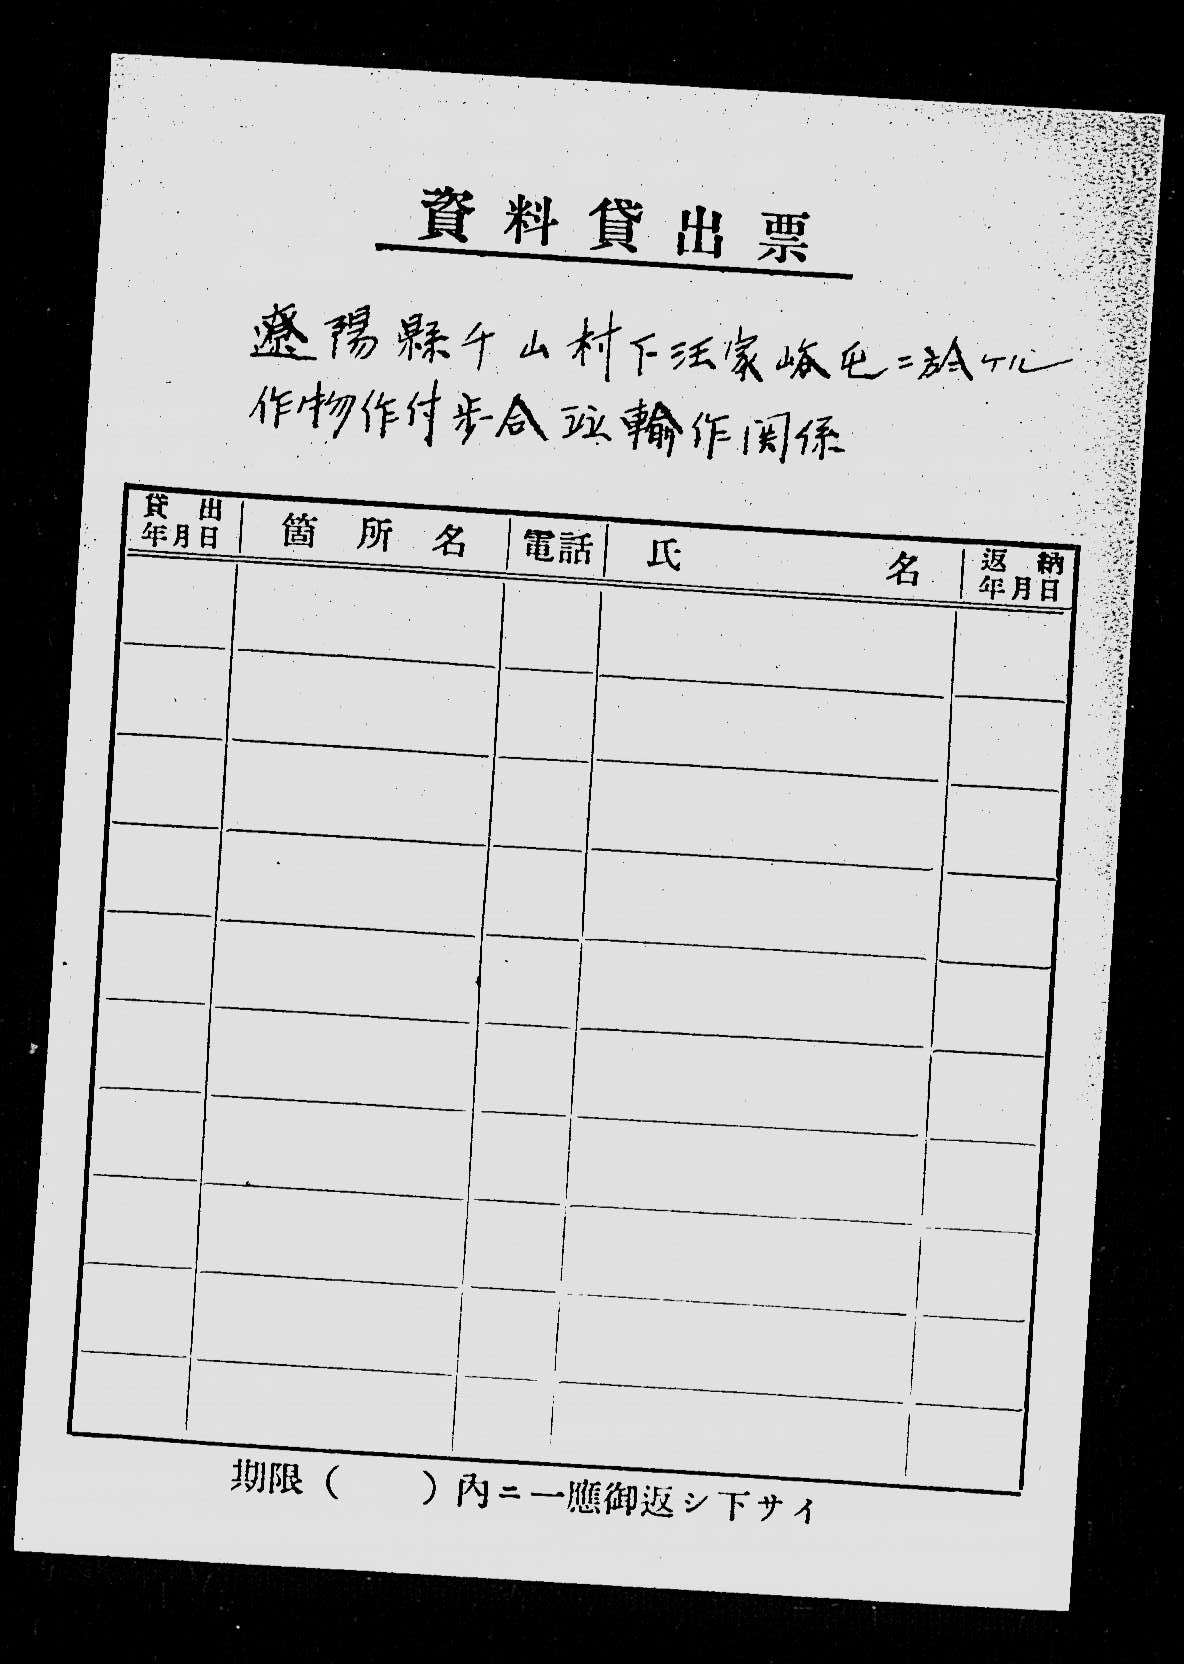 資料貸出票
遼陽縣千山村下汪家峪屯ニ於ケル
作物作付歩合並輪作関係
貸出年月日 箇所名 電話 氏名 返納年月日
期限（　　）内ニ一應御返シ下サイ